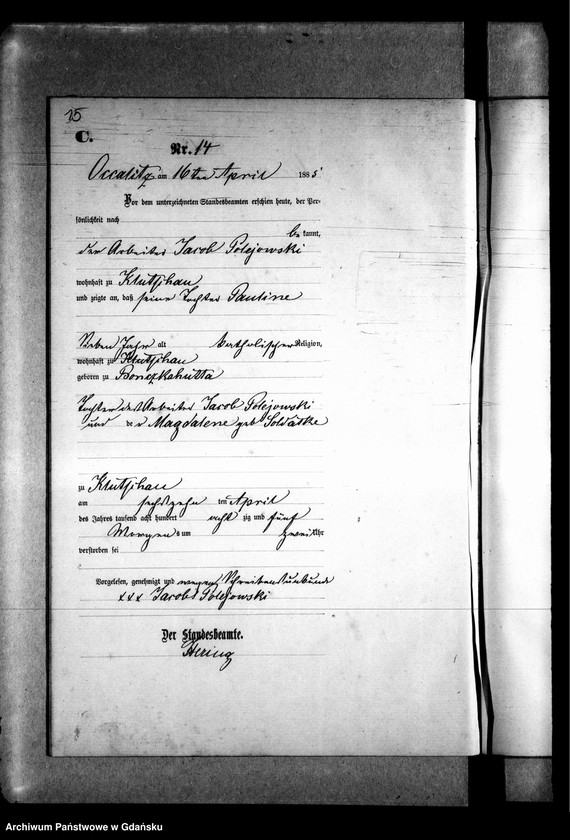 15
C.
Nr. 14
Occalitz am 16ten April 1885
Vor dem unterzeichneten Standesbeamten erschien heute, der Per-
sönlichkeit nach
be kannt,
der Arbeiter Jacob Polejowski
wohnhaft zu Klutschau
und zeigte an, daß seine Tochter Pauline
Sieben Jahr alt katholischer Religion,
wohnhaft zu Klutschau
geboren zu Bonczkahutta
Tochter des Arbeiter Jacob Polejowski
und der Magdalene geb Soldatke
zu Klutschau
am sechszehn ten April
des Jahres tausend acht hundert acht zig und fünf
Morgens um zwei Uhr
verstorben sei
Vorgelesen, genehmigt und wegen Schreibensunkunde
xxx Jacob Polejowski
Der Standesbeamte.
Hering
Archiwum Państwowe w Gdańsku